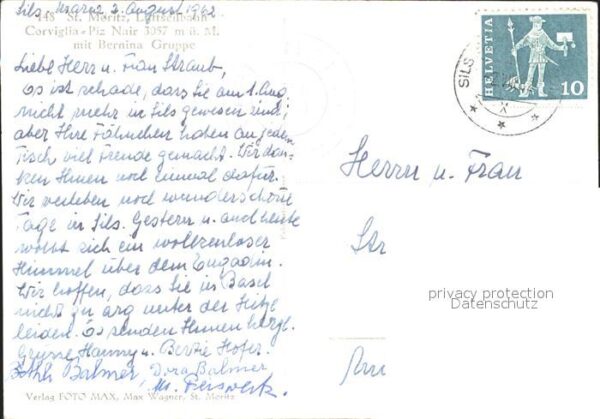 Sils, Margna 2. August 1962
148 St. Moritz, Luftseilbahn
Corviglia-Piz Nair 3057 m ü. M.
mit Bernina Gruppe
Liebe Herr u. Frau Straub,
es ist schade, dass Sie am 1. Aug.
nicht mehr in Sils gewesen sind;
aber Ihre Fähnchen haben an jedem
Tisch viel Freude gemacht. Wir dan-
ken Ihnen noch einmal dafür.
Wir verleben noch wunderschöne
Tage in Sils. Gestern u. auch heute
wölbt sich ein wolkenloser
Himmel über dem Engadin.
Wir hoffen, dass Sie in Basel
nicht zu arg unter der Hitze
leiden. Es senden Ihnen herzl.
Grüsse Hanny u. Bertie Hofer.
Balmer, Dora Balmer
Verlag FOTO MAX, Max Wagner, St. Moritz
HELVETIA
10
SILS
Herrn u. Frau
Str
privacy protection
Datenschutz